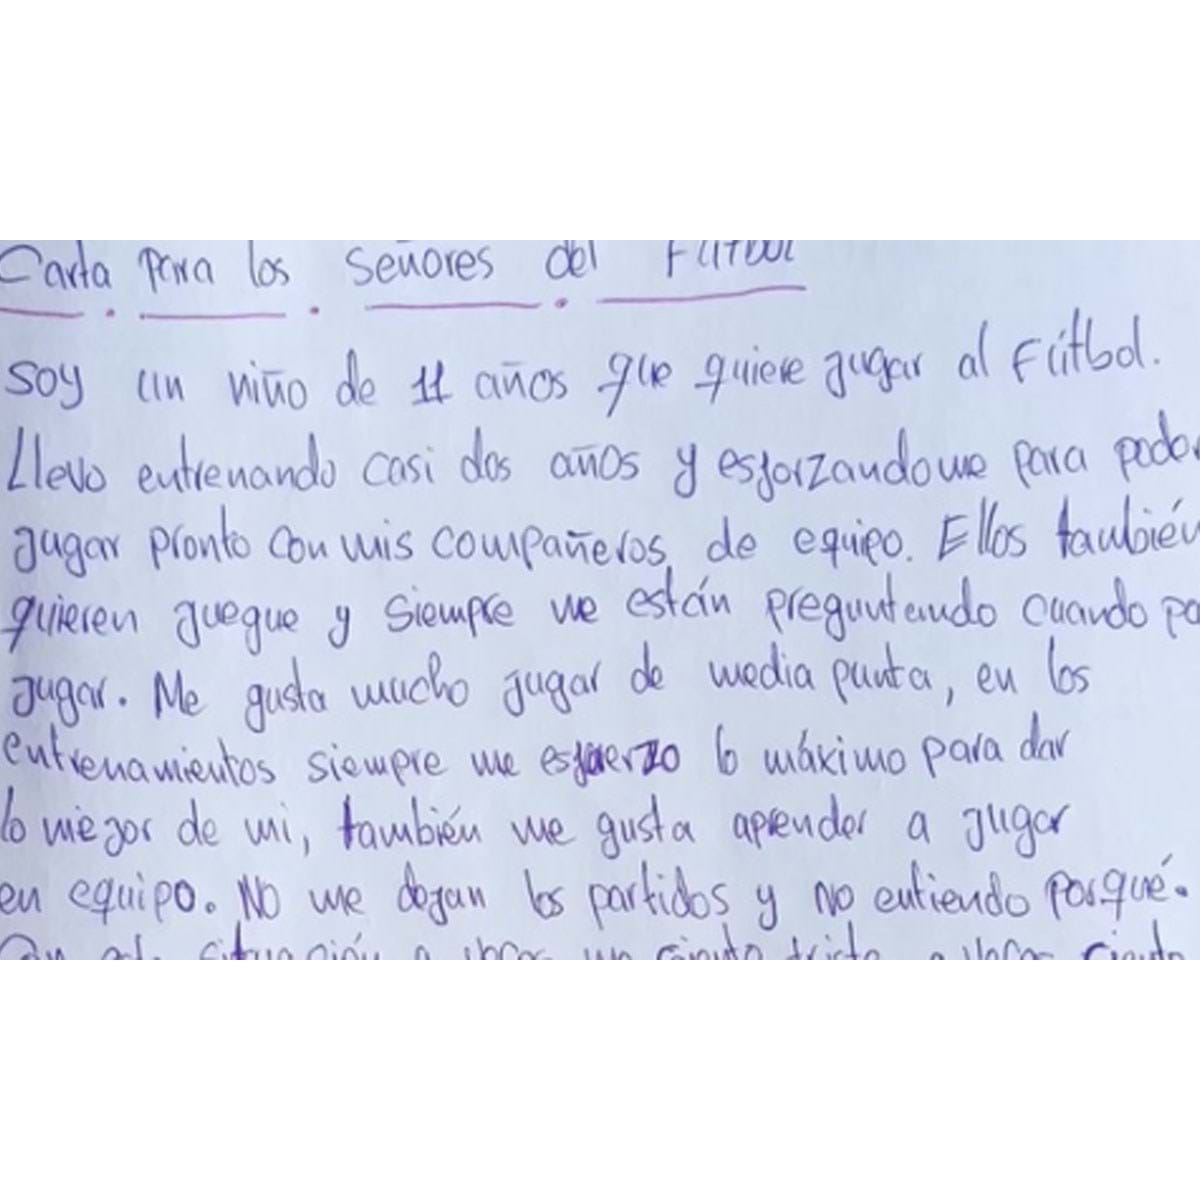 Carta para los Señores del FÚTBOL
Soy un niño de 11 años que quiere jugar al Fútbol.
Llevo entrenando casi dos años y esforzandome para pode
jugar pronto con mis compañeros de equipo. Ellos también
quieren juegue y siempre me están preguntando cuando
jugar. Me gusta mucho jugar de media punta, en los
entrenamientos siempre me esfuerzo lo máximo para dar
lo mejor de mi, también me gusta aprender a jugar
en equipo. No me dejan los partidos y no entiendo porqué.
situación a veces me siento triste a veces siento